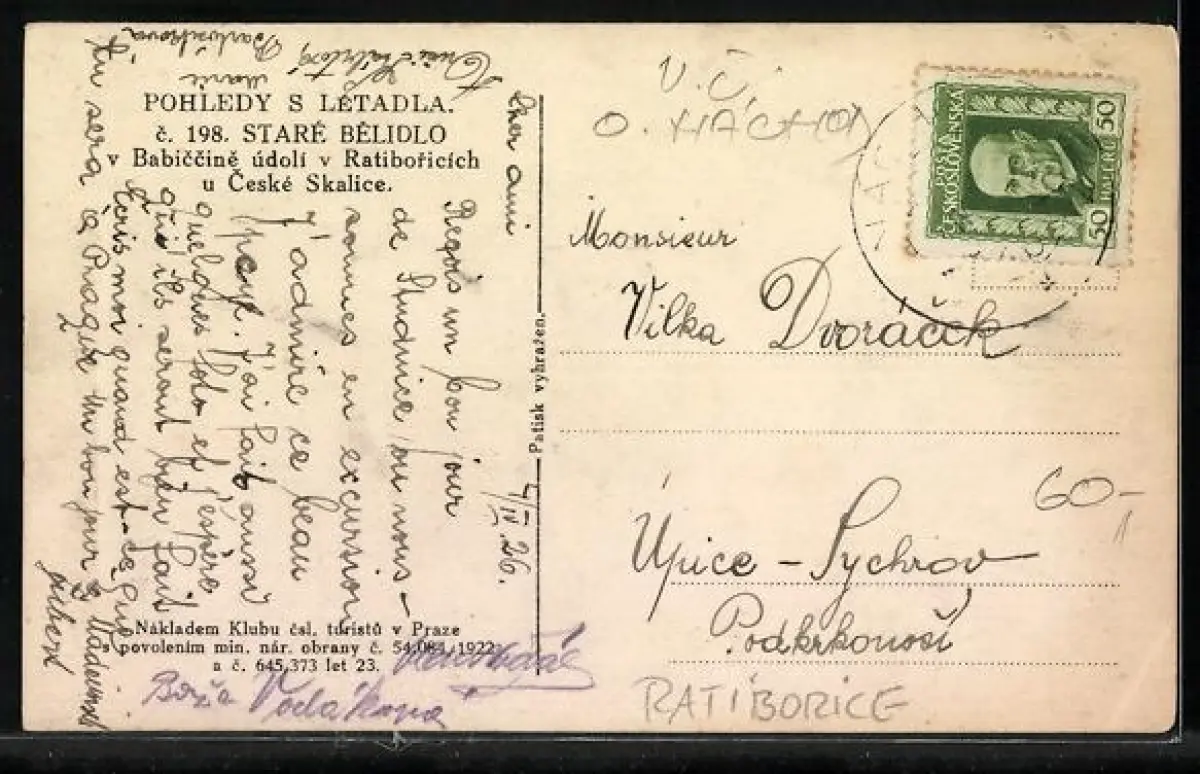 POHLEDY S LETADLA.
č. 198. STARÉ BĚLIDLO
v Babiččině údolí v Ratibořicích
u České Skalice.
4/IV 26.
Cher ami
Reçois un bon jour
de Studnice ou nous
sommes en excursion
J'admire ce beau
pays. J'ai fait aussi
quelques foto et j'espère
qu'ils seront bien fait
Écris moi quand est-ce que
tu sera à Prague
un bonjour
Marie
Nákladem Klubu čsl. turistů v Praze
s povolením min. nár. obrany č. 54.084 1922
a č. 645.373 let 23.
Boža Vodáková
Patisk vyhražen.
V.Č.
O. HÁCHOV
POŠTA
ČESKOSLOVENSKÁ
50 HALÉŘŮ 50
Monsieur
Vilka Dvořáček
Úpice - Sychrov
Podkrkonoší
60,-
RATIBOŘICE